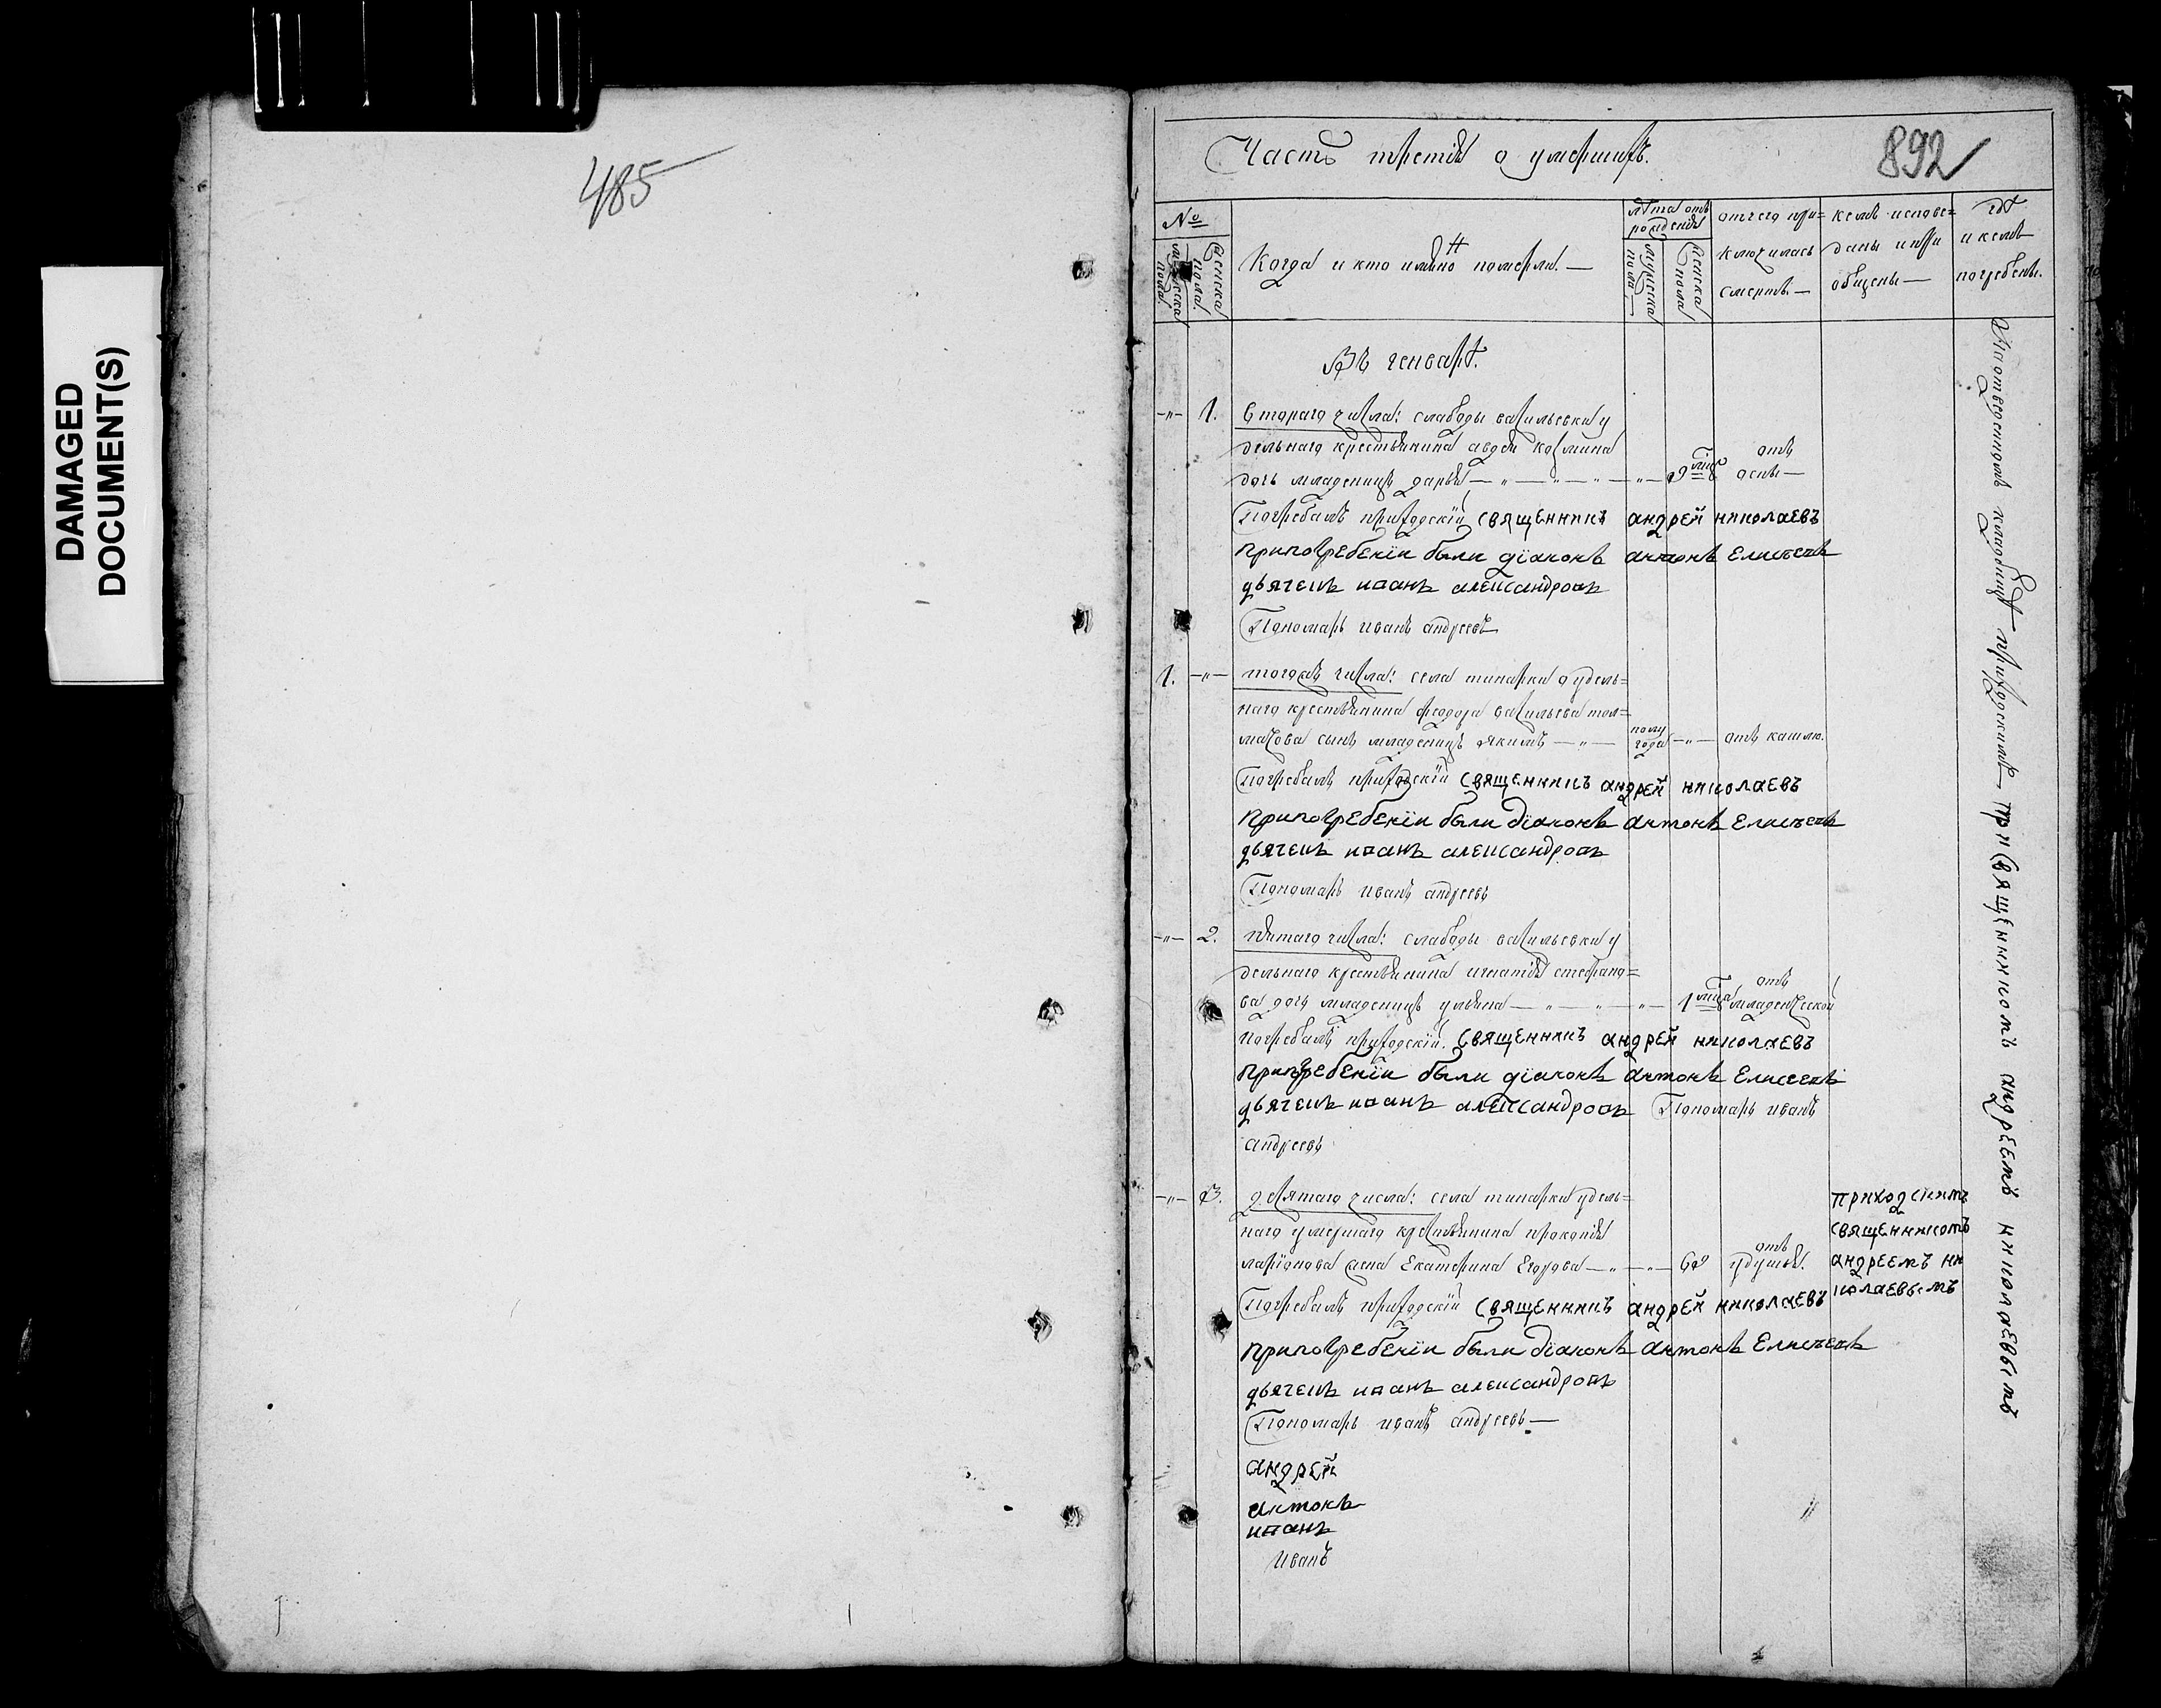 DAMAGED
DOCUMENT(S)
485
Часть третія о умершихъ.
892
№
мужеска пола.
женска пола.
Когда и кто имянно померли.—
лѣта отъ рожденія
мужеска пола—
женска пола
отчего при=
ключилась
смерть.—
кемъ исповѣ=
даны и прі
общены—
гдѣ
и кемъ
погребены.
Въ генварѣ.
-„- 1. втораго числа: слабоды васильевки у
дельнаго крестьянина авдея козмина
дочь младеницъ дарья —„—„—„— „— 9 мцъ отъ оспы—
Погребалъ приходскій священникъ андрей николаевъ
при погребеніи были діаконъ антонъ Елисеевъ
дьячекъ иванъ александровъ
Пономарь иванъ андреевъ
1. -„- тогожъ числа: села тинарки удель=
наго крестьянина феодора васильева тол=
мачова сынъ младенецъ якимъ —„— полу года —„— отъ кашлю.
Погребалъ приходскій священникъ андрей николаевъ
при погребеніи были діаконъ антонъ Елисеевъ
дьячекъ иванъ александровъ
Пономарь иванъ андреевъ
-„- 2. пятаго числа: слабоды васильевки у
дельнаго крестьянина игнатія стефано=
ва дочь младеницъ ульяна —„—„— „— 1 мцъ отъ младенческой
погребалъ приходскій священникъ андрей николаевъ
при погребеніи были діаконъ антонъ Елисеевъ
дьячекъ иванъ александровъ Пономарь иванъ
андреевъ
-„- 3. десятаго числа: села тинарки удель=
наго умершаго крестьянина прокопія
ларіонова жена Екатерина Егорова —„— „— 60 отъ удушья.
приходскимъ
священникомъ
андреемъ ни
колаевымъ
Погребалъ приходскій священникъ андрей николаевъ
при погребеніи были діаконъ антонъ Елисеевъ
дьячекъ иванъ александровъ
Пономарь иванъ андреевъ—
андрей
антонъ
иванъ
Иванъ
На отведенномъ кладбищѣ приходскимъ священникомъ андреемъ николаевымъ